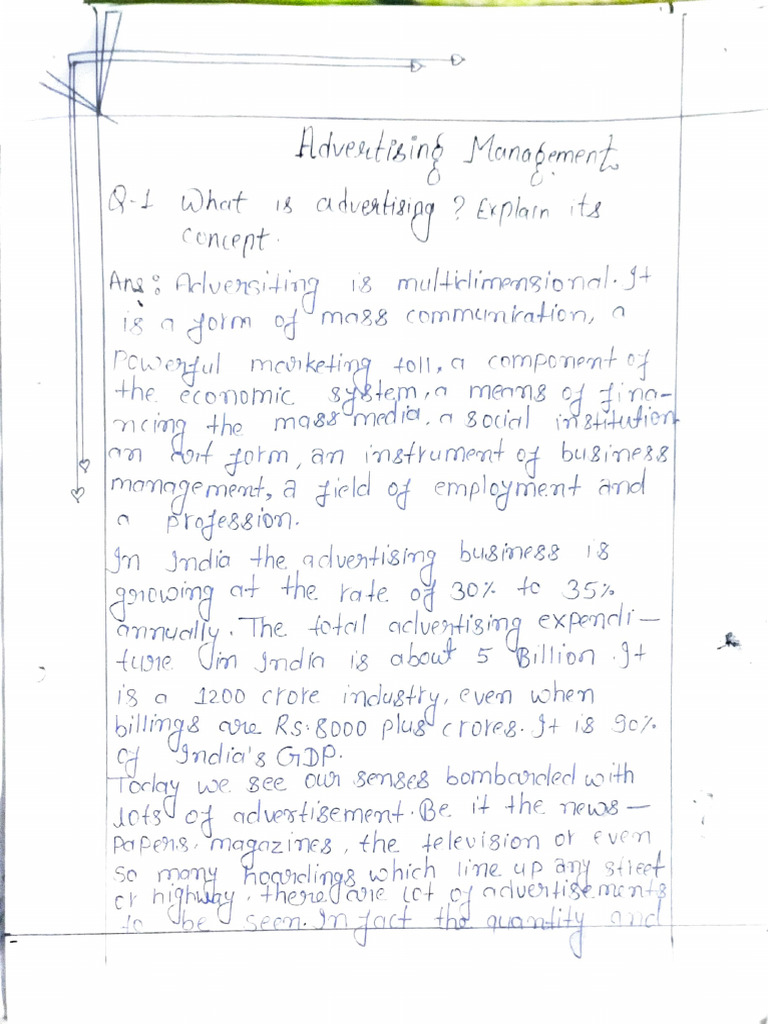 Advertising Management
Q-1 What is advertising? Explain its
concept.
Ans: Adversiting is multidimensional. It
is a form of mass communication, a
Powerful marketing toll, a component of
the economic system, a means of fina-
ncing the mass media, a social institution
an art form, an instrument of business
management, a field of employment and
a profession.
In India the advertising business is
growing at the rate of 30% to 35%
annually. The total advertising expendi-
ture in India is about 5 Billion. It
is a 1200 crore industry, even when
billings are Rs. 8000 plus crores. It is 90%
of India's GDP.
Today we see our senses bombarded with
lots of advertisement. Be it the news-
papers, magazines, the television or even
so many hoardings which line up any street
or highway, there are lot of advertisements
to be seen. In fact the quantity and